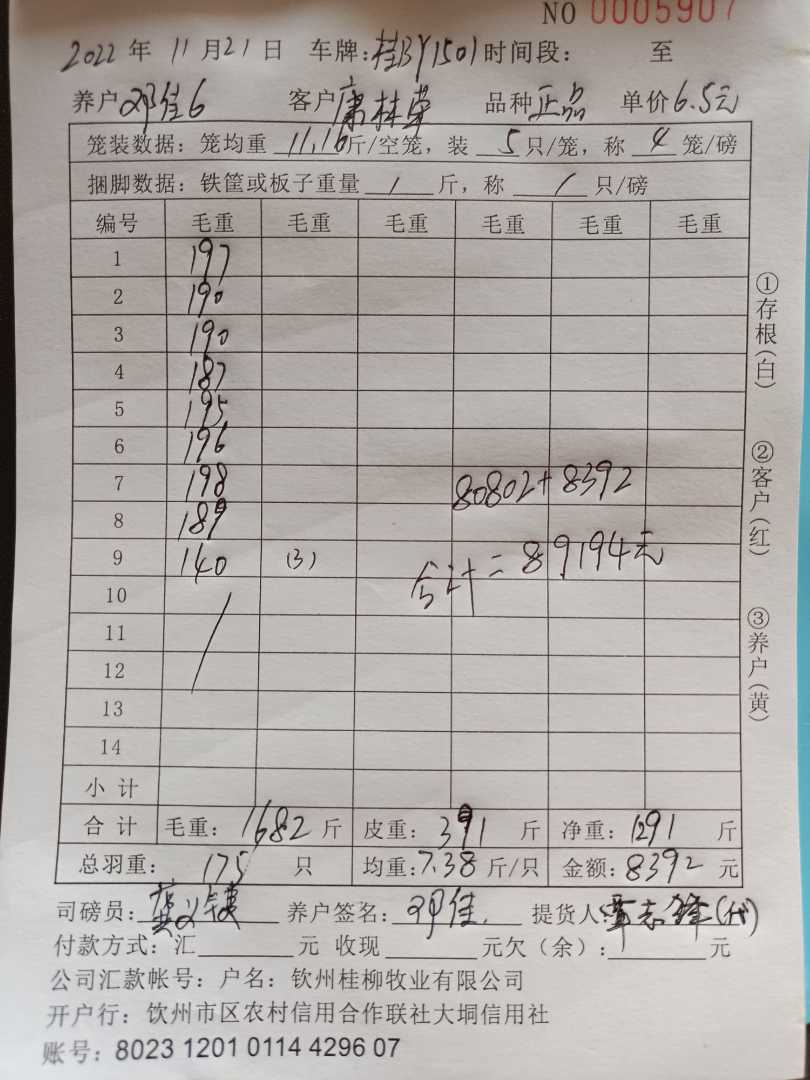 NO 0005907
2022年 11月21日 车牌:桂BY1501时间段: 至
养户 邓佳6 客户 唐林荣 品种 正品 单价6.5元
笼装数据: 笼均重 11.16斤/空笼, 装 5 只/笼, 称 4 笼/磅
捆脚数据: 铁筐或板子重量 / 斤, 称 / 只/磅
编号 毛重 毛重 毛重 毛重 毛重 毛重
1 197
2 190
3 190
4 187
5 195
6 196
7 198 80802+8392
8 189
9 140 (3) 合计=89194元
10 /
11
12
13
14
小 计
合 计 毛重: 1682 斤 皮重: 391 斤 净重: 1291 斤
总羽重: 175 只 均重:7.38 斤/只 金额:8392 元
司磅员: 养户签名: 邓佳. 提货人: (代)
付款方式: 汇 元 收现 元欠(余): 元
公司汇款帐号: 户名: 钦州桂柳牧业有限公司
开户行: 饮州市区农村信用合作联社大垌信用社
账号: 8023 1201 0114 4296 07
①存根(白)
②客户(红)
③养户(黄)